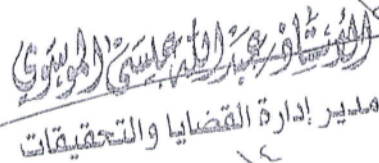 الأستاذ/عبدالله عيسى الموسوي
مدير إدارة القضايا والتحقيقات